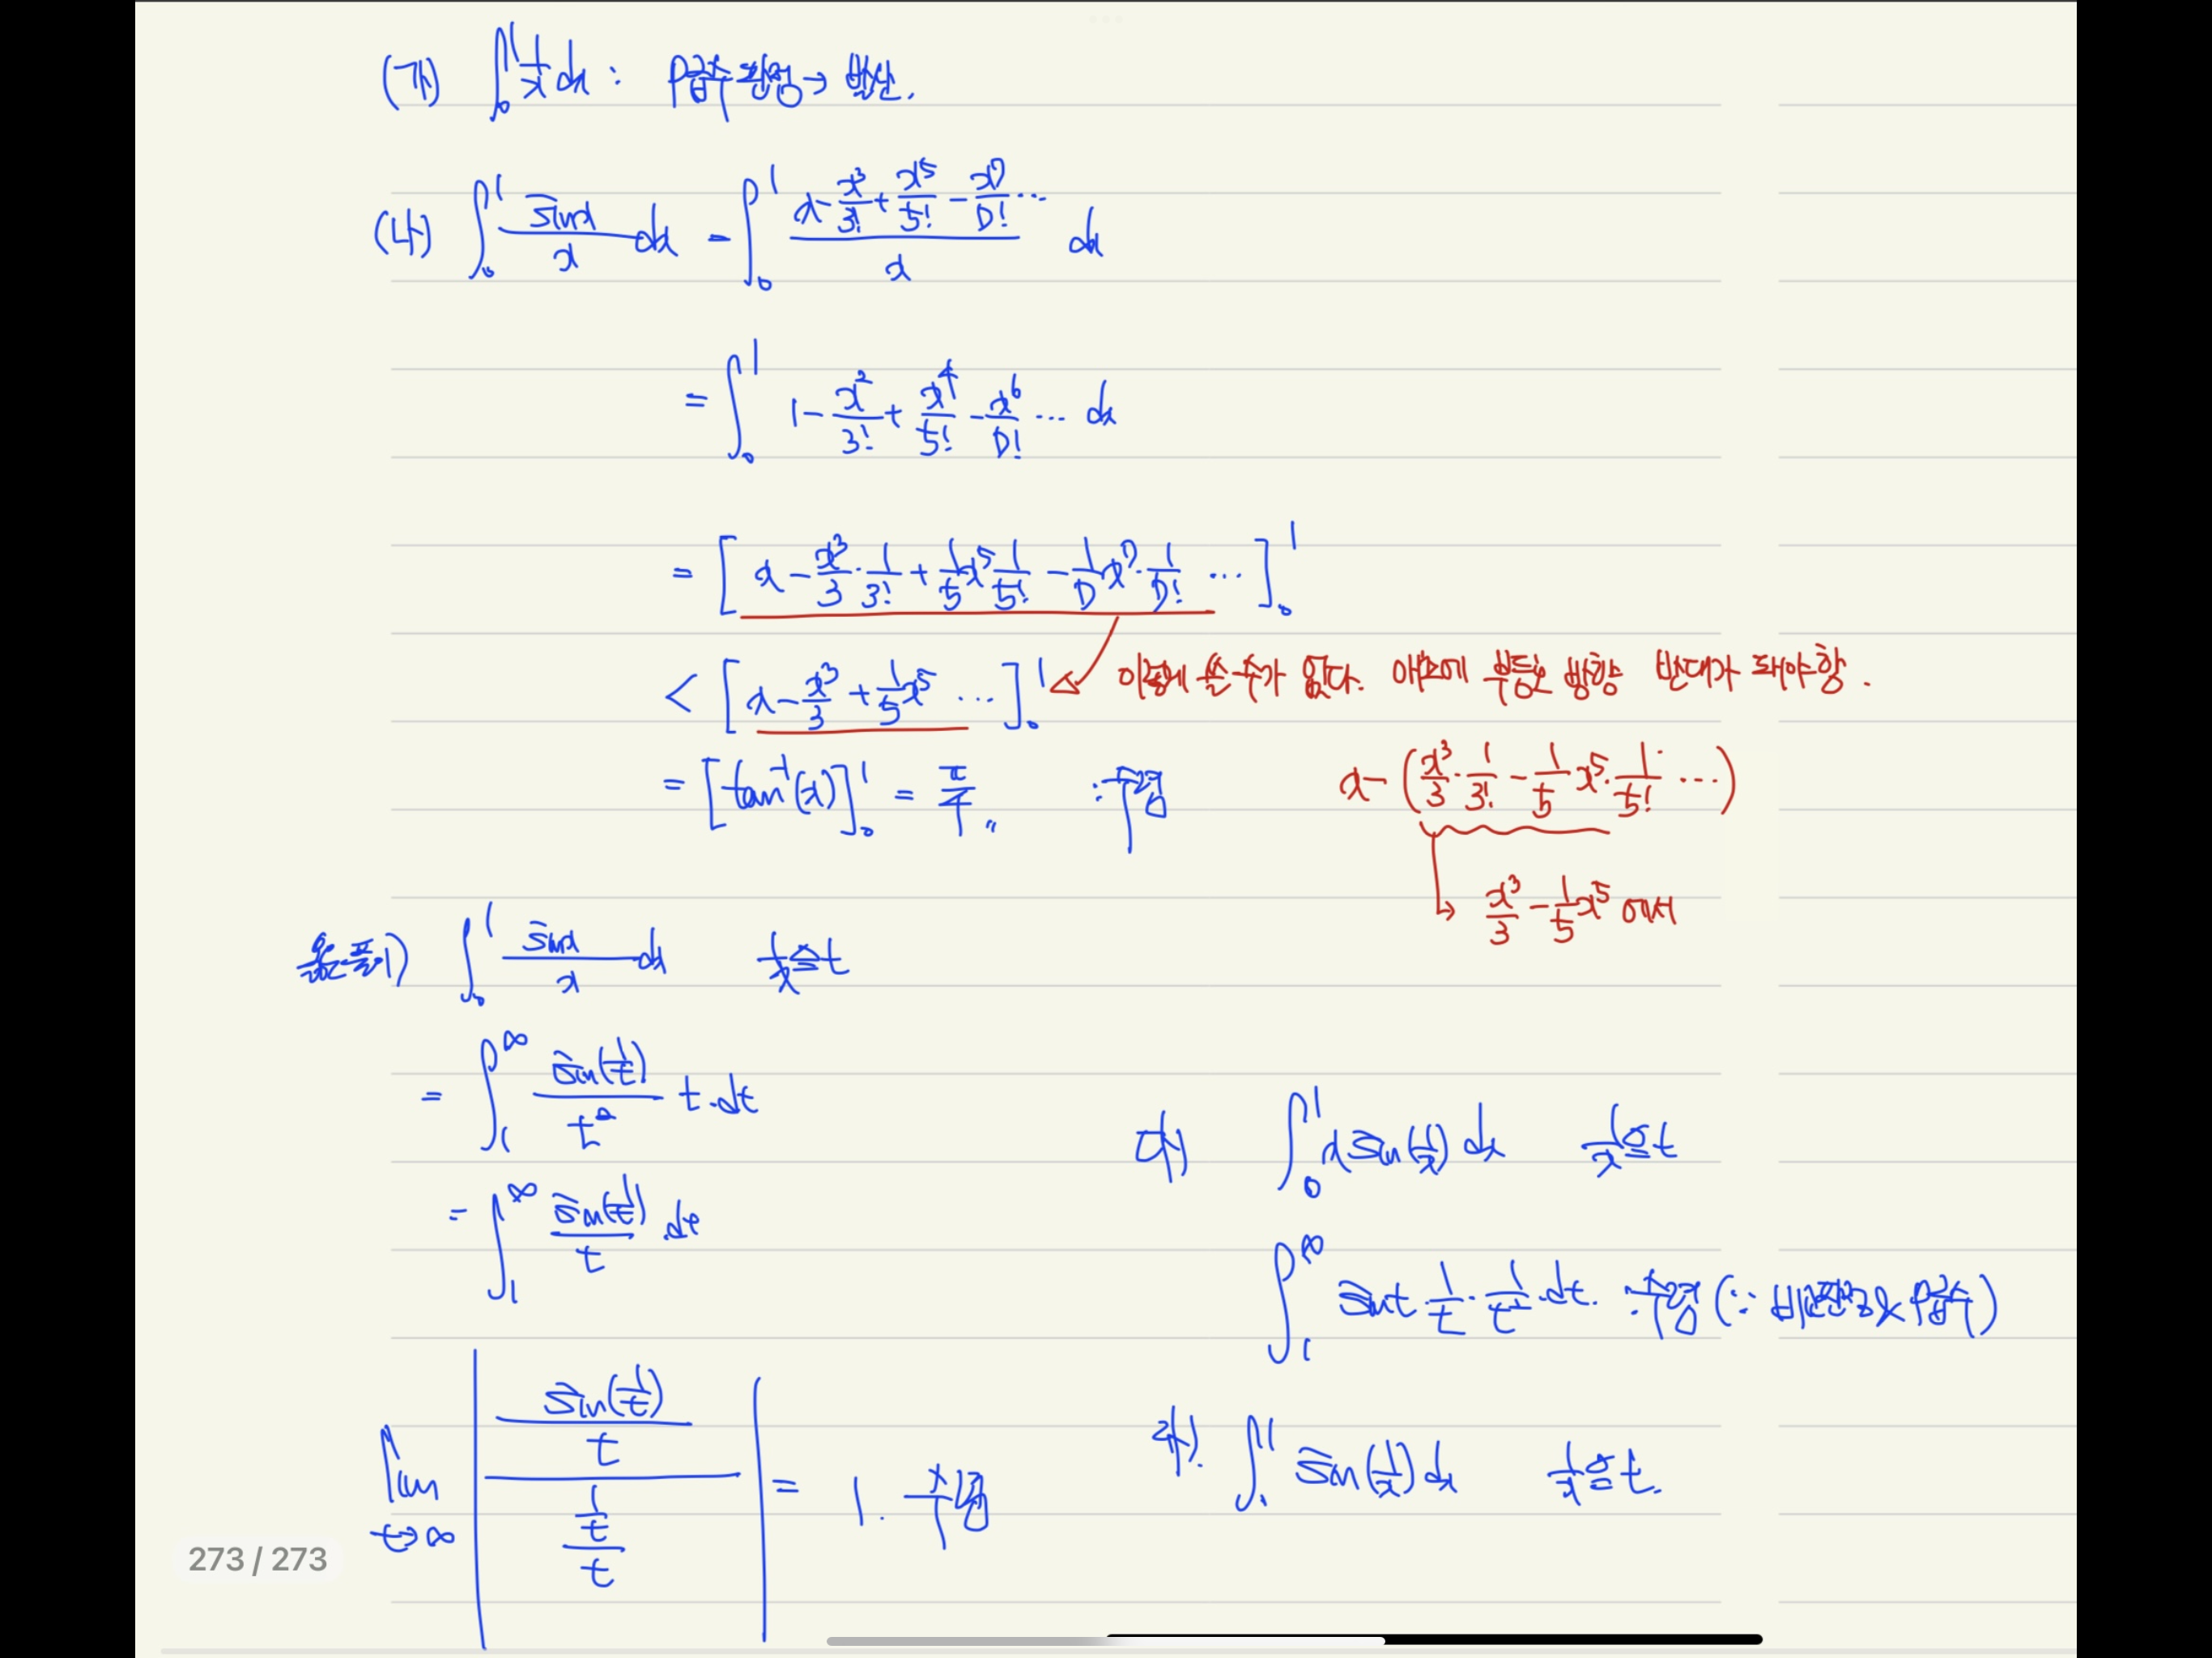 (가) ∫₀¹ 1/x dx : p급수 판정 → 발산.
(나) ∫₀¹ sinx/x dx = ∫₀¹ (x - x³/3! + x⁵/5! - x⁷/7! ⋯)/x dx
= ∫₀¹ 1 - x²/3! + x⁴/5! - x⁶/7! ⋯ dx
= [x - x³/3 · 1/3! + 1/5 x⁵ 1/5! - 1/7 x⁷ · 1/7! ⋯]₀¹
< [x - x³/3 + 1/5 x⁵ ⋯]₀¹ 부등호 방향 반대가 돼야함.
= [tan⁻¹(x)]₀¹ = π/4 〃 ∴ 수렴
x - (x³/3 · 1/3! - 1/5 x⁵ · 1/5! ⋯)
x³/3 - 1/5 x⁵ 에서
1) ∫₀¹ sinx/x dx 1/x ≙ t
= ∫₁^∞ sin(1/t)/t² · t · dt
= ∫₁^∞ sin(1/t)/t dt
lim t→∞ |(sin(1/t)/t)/((1/t)/t)| = 1. 수렴
다) ∫₀¹ x sin(1/x) dx 1/x ≙ t
∫₁^∞ sint · 1/t · 1/t² · dt. ∴ 수렴 (∵ 비교판정 & p급수)
라). ∫₀¹ sin(1/x) dx 1/x ≙ t.
273 / 273